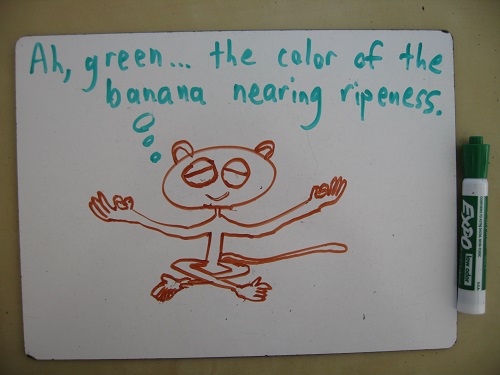 Ah, green... the color of the
banana nearing ripeness.
EXPO